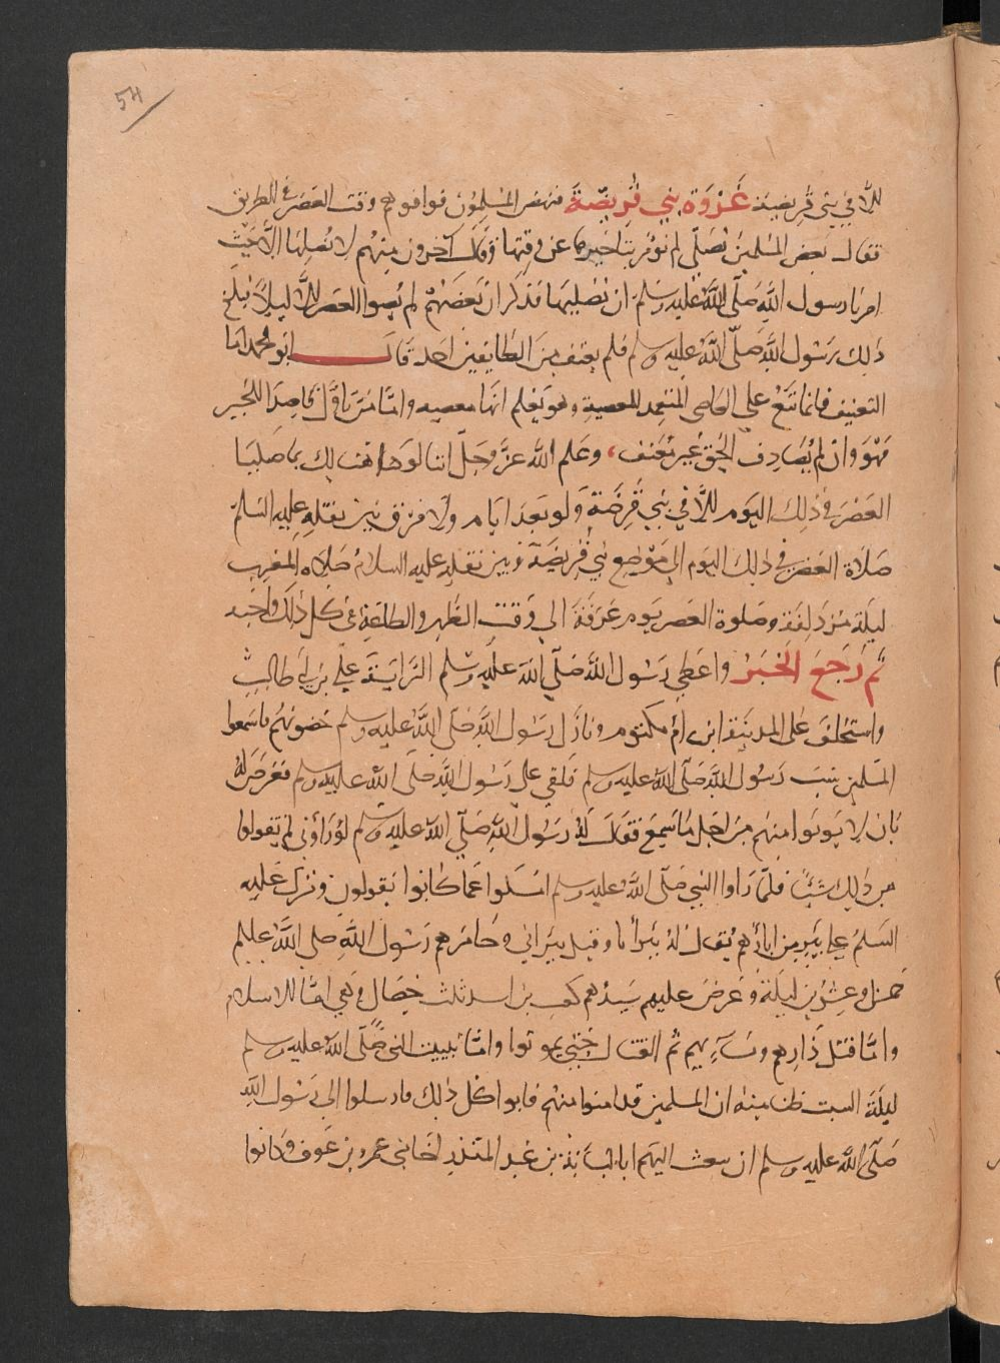 54
إلا في بني قريضة غزوة بني قريضة فنهض المسلمون فوافوهم وقت العصر في الطريق
فقال بعض المسلمين نصلي لم نؤمر بتاخيرها عن وقتها وقال آخرون منهم لا نصليها الا حيث
امرنا رسول الله صلى الله عليه وسلم ان نصليها فذكر ان بعضهم لم يصلوا العصر الا ليلا فبلغ
ذلك رسول الله صلى الله عليه وسلم فلم يعنف من الطايفين احد قال ابو محمد اما
التعنيف فانما تقع على العاصى المتعمد للمعصية وهو يعلم انها معصيه واما من تاول قاصدا للخير
فهو وان لم يصادف الحق غير معنف، وعلم الله عز وجل اننا لو هناك ما صلينا
العصر في ذلك اليوم الا في بني قرضة ولو بعد ايام ولا فرق بين نقله عليه السلم
صلاة العصر في ذلك اليوم الى موضع بني قريضة وبين نقله عليه السلام صلاه المغرب
ليلة مزدلفة وصلوة العصر يوم عرفة الى وقت الظهر والطاعة في كل ذلك واجبه
ثم رجع الخبر واعطي رسول الله صلى الله عليه وسلم الراية علي بن ابي طالب
واستخلف على المدينة ابن ام مكتوم ونازل رسول الله صلى الله عليه وسلم حصونهم فاسمعوا
المسلمين سب رسول الله صلى الله عليه وسلم فلقي علي رسول الله صلى الله عليه وسلم فعرض له
بان لا يدنوا منهم من اجل ما سمع فقال له رسول الله صلى الله عليه وسلم لو راوني لم يقولوا
من ذلك شيئا فلما راوا النبي صلى الله عليه وسلم امسكوا عما كانوا يقولون ونزل عليه
السلم على بير من ابائرهم يقال له بير أنا وقيل بير اني وحاصرهم رسول الله صلى الله عليلم
خمسا وعشرين ليلة وعرض عليهم سيدهم كعب بن اسد ثلث خصال وهي اما الاسلام
واما قتل ذراريهم ونسآءيهم ثم القتال حتى يموتوا واما تبييت النبي صلى الله عليه وسلم
ليلة السبت ظنا منه ان المسلمين قد امنوا منهم فابوا كل ذلك فارسلوا الى رسول الله
صلى الله عليه وسلم ان يبعث اليهم ابا لبابة بن عبد المنذر اخا بني عمرو بن عوف وكانوا